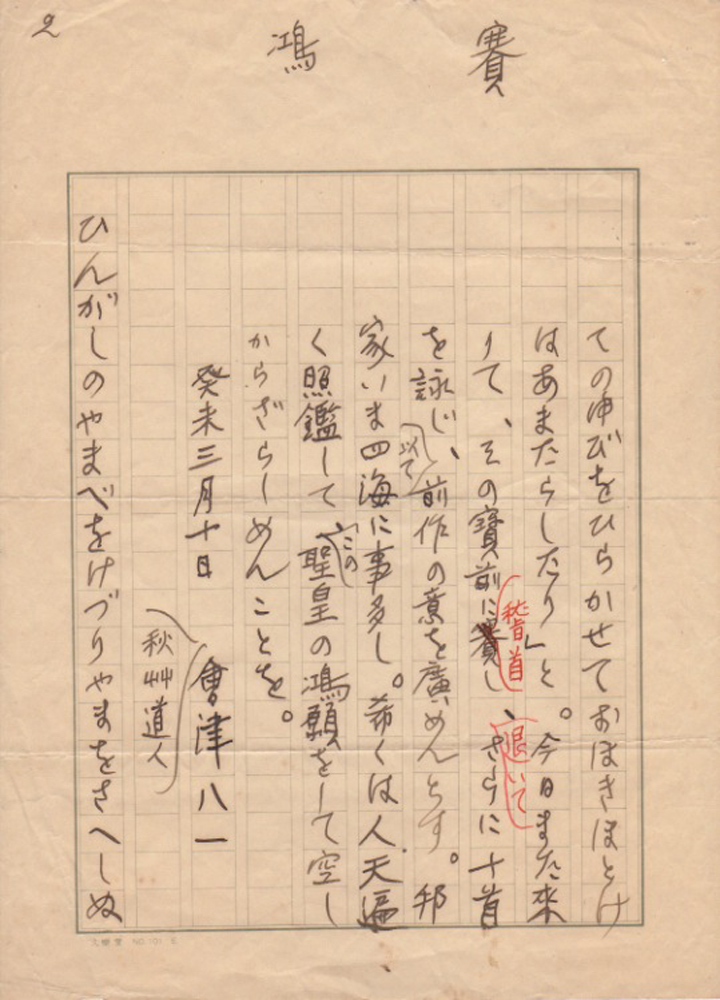 2
賽 鴻
ての伸びをひらかせておほきほとけ
はあまたらしたり」と。今日また来
りて、その寶前に稽首し、退いてさらに十首
を詠じ、以て前作の意を廣めんとす。邦
家いま四海に事多し。希くは人天遍
く照鑑して、この聖皇の鴻願をして空し
からざらしめんことを。
癸未三月十日
會津八一
秋艸道人
ひんがしのやまべをけづりやまをさへしぬ